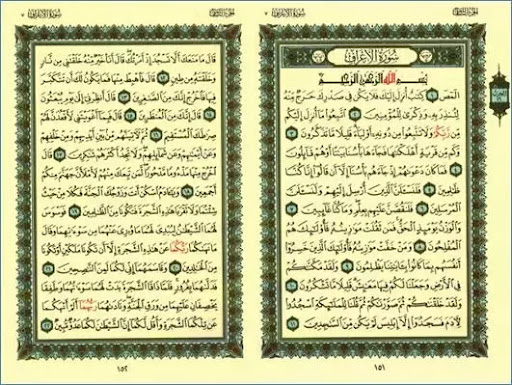 الجزء الثامن سُورَةُ الأَعْرَافِ ٧
سُورَةُ الأَعْرَافِ
بِسْمِ اللَّهِ الرَّحْمَٰنِ الرَّحِيمِ
الٓمٓصٓ ١ كِتَٰبٌ أُنزِلَ إِلَيْكَ فَلَا يَكُن فِي صَدْرِكَ حَرَجٌ مِّنْهُ
لِتُنذِرَ بِهِۦ وَذِكْرَىٰ لِلْمُؤْمِنِينَ ٢ ٱتَّبِعُوا۟ مَآ أُنزِلَ إِلَيْكُم
مِّن رَّبِّكُمْ وَلَا تَتَّبِعُوا۟ مِن دُونِهِۦٓ أَوْلِيَآءَ قَلِيلًا مَّا تَذَكَّرُونَ ٣
وَكَم مِّن قَرْيَةٍ أَهْلَكْنَٰهَا فَجَآءَهَا بَأْسُنَا بَيَٰتًا أَوْ هُمْ قَآئِلُونَ
٤ فَمَا كَانَ دَعْوَىٰهُمْ إِذْ جَآءَهُم بَأْسُنَآ إِلَّآ أَن قَالُوٓا۟ إِنَّا كُنَّا
ظَٰلِمِينَ ٥ فَلَنَسْـَٔلَنَّ ٱلَّذِينَ أُرْسِلَ إِلَيْهِمْ وَلَنَسْـَٔلَنَّ
ٱلْمُرْسَلِينَ ٦ فَلَنَقُصَّنَّ عَلَيْهِم بِعِلْمٍ وَمَا كُنَّا غَآئِبِينَ ٧
وَٱلْوَزْنُ يَوْمَئِذٍ ٱلْحَقُّ فَمَن ثَقُلَتْ مَوَٰزِينُهُۥ فَأُو۟لَٰٓئِكَ هُمُ
ٱلْمُفْلِحُونَ ٨ وَمَنْ خَفَّتْ مَوَٰزِينُهُۥ فَأُو۟لَٰٓئِكَ ٱلَّذِينَ خَسِرُوٓا۟
أَنفُسَهُم بِمَا كَانُوا۟ بِـَٔايَٰتِنَا يَظْلِمُونَ ٩ وَلَقَدْ مَكَّنَّٰكُمْ
فِي ٱلْأَرْضِ وَجَعَلْنَا لَكُمْ فِيهَا مَعَٰيِشَ قَلِيلًا مَّا تَشْكُرُونَ ١٠
وَلَقَدْ خَلَقْنَٰكُمْ ثُمَّ صَوَّرْنَٰكُمْ ثُمَّ قُلْنَا لِلْمَلَٰٓئِكَةِ ٱسْجُدُوا۟
لِـَٔادَمَ فَسَجَدُوٓا۟ إِلَّآ إِبْلِيسَ لَمْ يَكُن مِّنَ ٱلسَّٰجِدِينَ ١١
١٥١
الجزء الثامن سُورَةُ الأَعْرَافِ ٧
قَالَ مَا مَنَعَكَ أَلَّا تَسْجُدَ إِذْ أَمَرْتُكَ قَالَ أَنَا۠ خَيْرٌ مِّنْهُ خَلَقْتَنِي مِن نَّارٍ
وَخَلَقْتَهُۥ مِن طِينٍ ١٢ قَالَ فَٱهْبِطْ مِنْهَا فَمَا يَكُونُ لَكَ أَن تَتَكَبَّرَ
فِيهَا فَٱخْرُجْ إِنَّكَ مِنَ ٱلصَّٰغِرِينَ ١٣ قَالَ أَنظِرْنِيٓ إِلَىٰ يَوْمِ يُبْعَثُونَ
١٤ قَالَ إِنَّكَ مِنَ ٱلْمُنظَرِينَ ١٥ قَالَ فَبِمَآ أَغْوَيْتَنِي لَأَقْعُدَنَّ لَهُمْ
صِرَٰطَكَ ٱلْمُسْتَقِيمَ ١٦ ثُمَّ لَـَٔاتِيَنَّهُم مِّنۢ بَيْنِ أَيْدِيهِمْ وَمِنْ خَلْفِهِمْ
وَعَنْ أَيْمَٰنِهِمْ وَعَن شَمَآئِلِهِمْ وَلَا تَجِدُ أَكْثَرَهُمْ شَٰكِرِينَ ١٧ قَالَ
ٱخْرُجْ مِنْهَا مَذْءُومًا مَّدْحُورًا لَّمَن تَبِعَكَ مِنْهُمْ لَأَمْلَأَنَّ جَهَنَّمَ مِنكُمْ
أَجْمَعِينَ ١٨ وَيَٰٓـَٔادَمُ ٱسْكُنْ أَنتَ وَزَوْجُكَ ٱلْجَنَّةَ فَكُلَا مِنْ حَيْثُ
شِئْتُمَا وَلَا تَقْرَبَا هَٰذِهِ ٱلشَّجَرَةَ فَتَكُونَا مِنَ ٱلظَّٰلِمِينَ ١٩ فَوَسْوَسَ
لَهُمَا ٱلشَّيْطَٰنُ لِيُبْدِيَ لَهُمَا مَا وُۥرِيَ عَنْهُمَا مِن سَوْءَٰتِهِمَا وَقَالَ
مَا نَهَىٰكُمَا رَبُّكُمَا عَنْ هَٰذِهِ ٱلشَّجَرَةِ إِلَّآ أَن تَكُونَا مَلَكَيْنِ أَوْ تَكُونَا
مِنَ ٱلْخَٰلِدِينَ ٢٠ وَقَاسَمَهُمَآ إِنِّي لَكُمَا لَمِنَ ٱلنَّٰصِحِينَ ٢١
فَدَلَّىٰهُمَا بِغُرُورٍ فَلَمَّا ذَاقَا ٱلشَّجَرَةَ بَدَتْ لَهُمَا سَوْءَٰتُهُمَا وَطَفِقَا
يَخْصِفَانِ عَلَيْهِمَا مِن وَرَقِ ٱلْجَنَّةِ وَنَادَىٰهُمَا رَبُّهُمَآ أَلَمْ أَنْهَكُمَا
عَن تِلْكُمَا ٱلشَّجَرَةِ وَأَقُل لَّكُمَآ إِنَّ ٱلشَّيْطَٰنَ لَكُمَا عَدُوٌّ مُّبِينٌ ٢٢
١٥٢